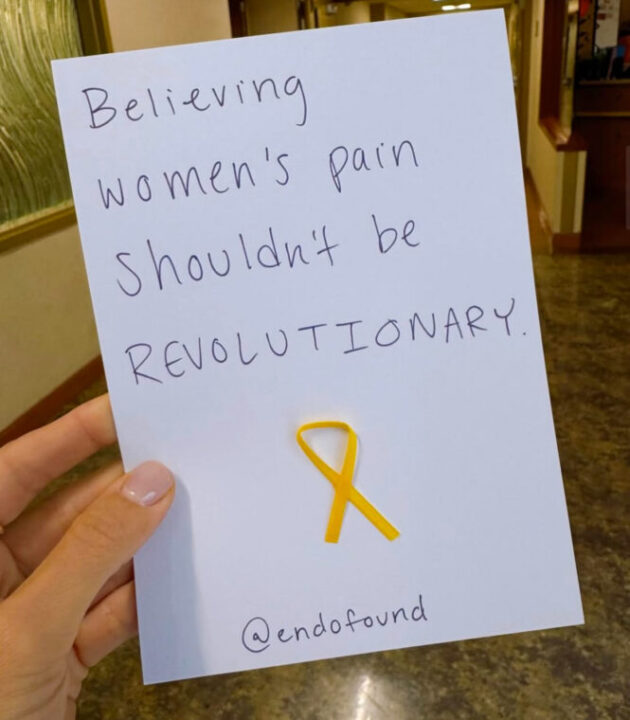 Believing
women's pain
shouldn't be
REVOLUTIONARY.
@endofound